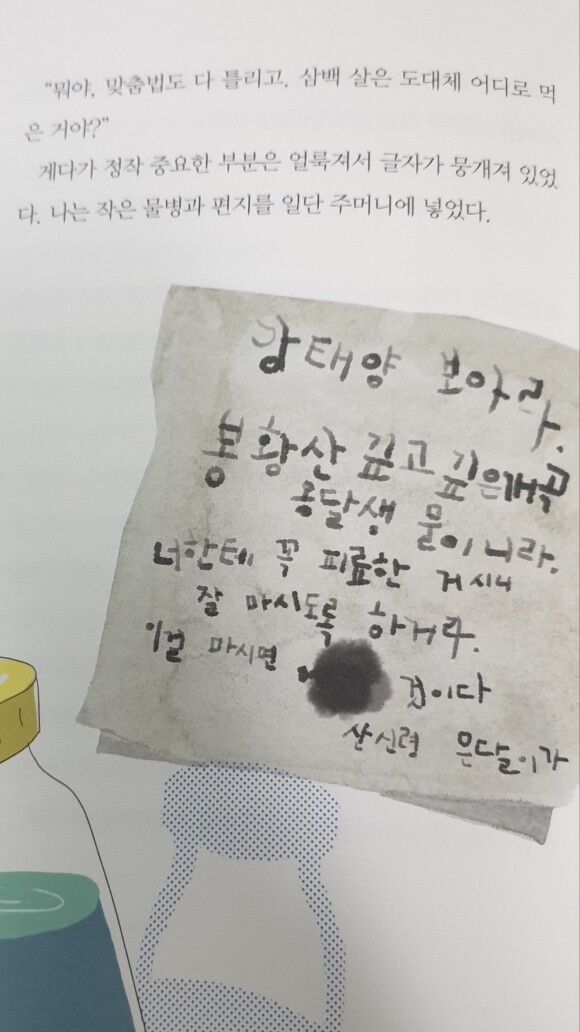 "뭐야, 맞춤법도 다 틀리고. 삼백 살은 도대체 어디로 먹
은 거야?"
게다가 정작 중요한 부분은 얼룩져서 글자가 뭉개져 있었
다. 나는 작은 물병과 편지를 일단 주머니에 넣었다.
강태양 보아라.
봉황산 깊고 깊은개곡
옹달생 물이니라.
너한테 꼭 피료한 거시니
잘 마시도록 하거라.
이걸 마시면 것이다
산신령 은달이가